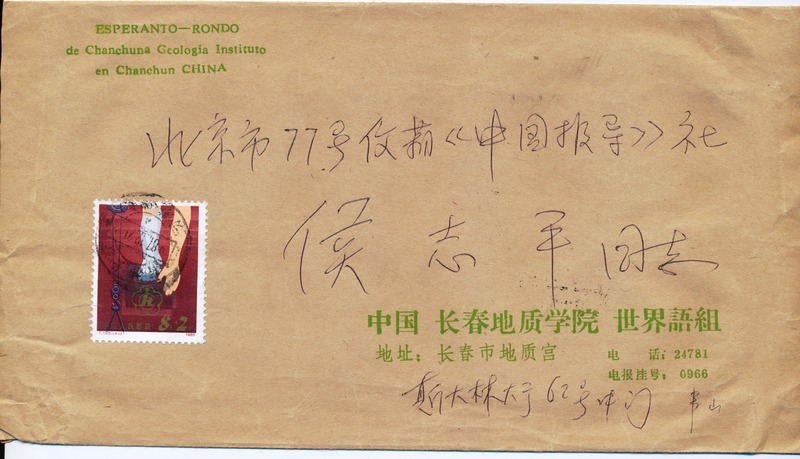 ESPERANTO—RONDO
de Chanchuna Geologia Instituto
en Chanchun CHINA
北京市77号信箱《中国报导》社
侯志平同志
8-2
中国 长春地质学院 世界語組
地址：长春市地质宫 电 话：24781
电报挂号：0966
斯大林大街62号中门